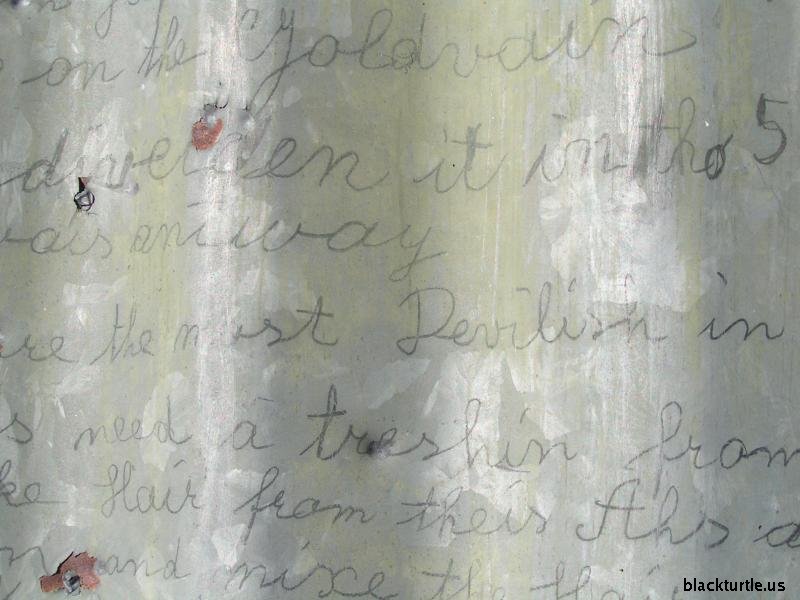 on the Goldvain
diveiden it in tho 5
vais aniway
re the most Devilish in
s need a treshin from
ke Hair from theis Ahs a
and mixe the Hai
blackturtle.us